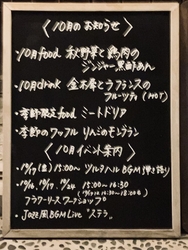 〈10月のお知らせ〉
・10月food 秋野菜と鶏肉の
ジンジャー黒酢あん
・10月drink 金木犀とラフランスの
フルーツティ (HOT)
・季節限定food ミートドリア
・季節のワッフル りんごのモンブラン
〈10月イベント案内〉
15:00〜 ツルタハル BGM
15:00〜16:30
フラワーリース ワークショップ
・JAZZ風BGM Live "ステラ"